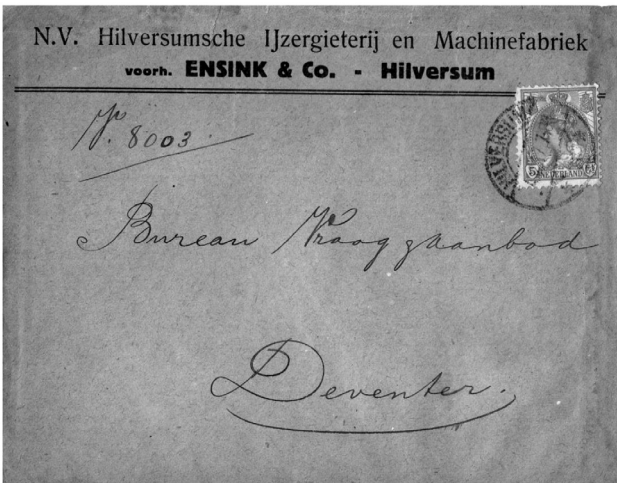 N.V. Hilversumsche IJzergieterij en Machinefabriek
voorh. ENSINK & Co. - Hilversum
No. 8003.
HILVERSUM
5 NEDERLAND Ct
Bureau Vraag & aanbod
Deventer.